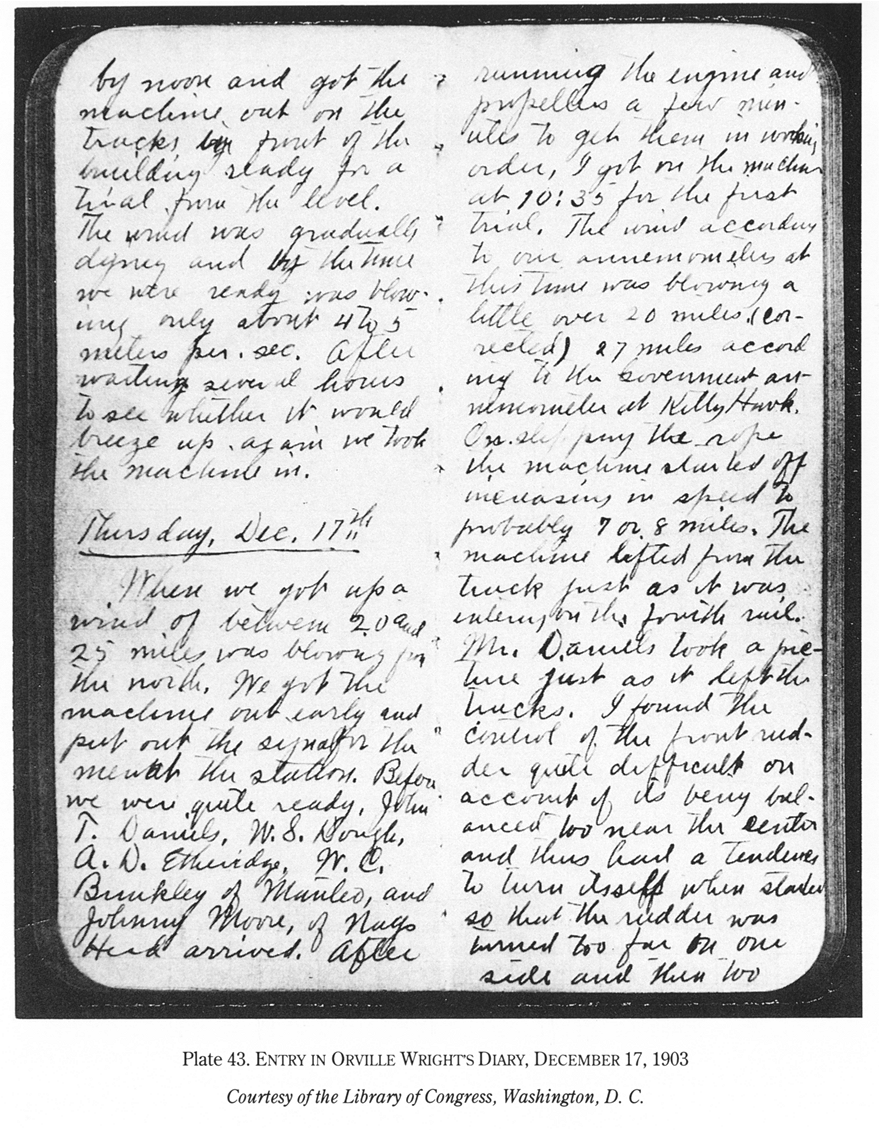 by noon and got the
machine out on the
tracks in front of the
building ready for a
trial from the level.
The wind was gradually
dying and by the time
we were ready was blow-
ing only about 4 to 5
meters per. sec. After
waiting several hours
to see whether it would
breeze up again we took
the machine in.
Thursday, Dec. 17th
When we got up a
wind of between 20 and
25 miles was blowing from
the north. We got the
machine out early and
put out the signal for the
men at the station. Before
we were quite ready, John
T. Daniels, W. S. Dough,
A. D. Etheridge, W. C.
Brinkley of Manteo, and
Johnny Moore, of Nags
Head arrived. After
running the engine and
propellers a few min-
utes to get them in working
order, I got on the machine
at 10:35 for the first
trial. The wind according
to our annemometers at
this time was blowing a
little over 20 miles (cor-
rected) 27 miles accord
ing to the Government an-
nemometer at Kitty Hawk.
On slipping the rope
the machine started off
increasing in speed to
probably 7 or 8 miles. The
machine lifted from the
truck just as it was
entering on the fourth rail.
Mr. Daniels took a pic-
ture just as it left the
tracks. I found the
control of the front rud-
der quite difficult on
account of its being bal-
anced too near the center
and thus had a tendency
to turn itself when started
so that the rudder was
turned too far on one
side and then too
Plate 43. ENTRY IN ORVILLE WRIGHT'S DIARY, DECEMBER 17, 1903
Courtesy of the Library of Congress, Washington, D. C.